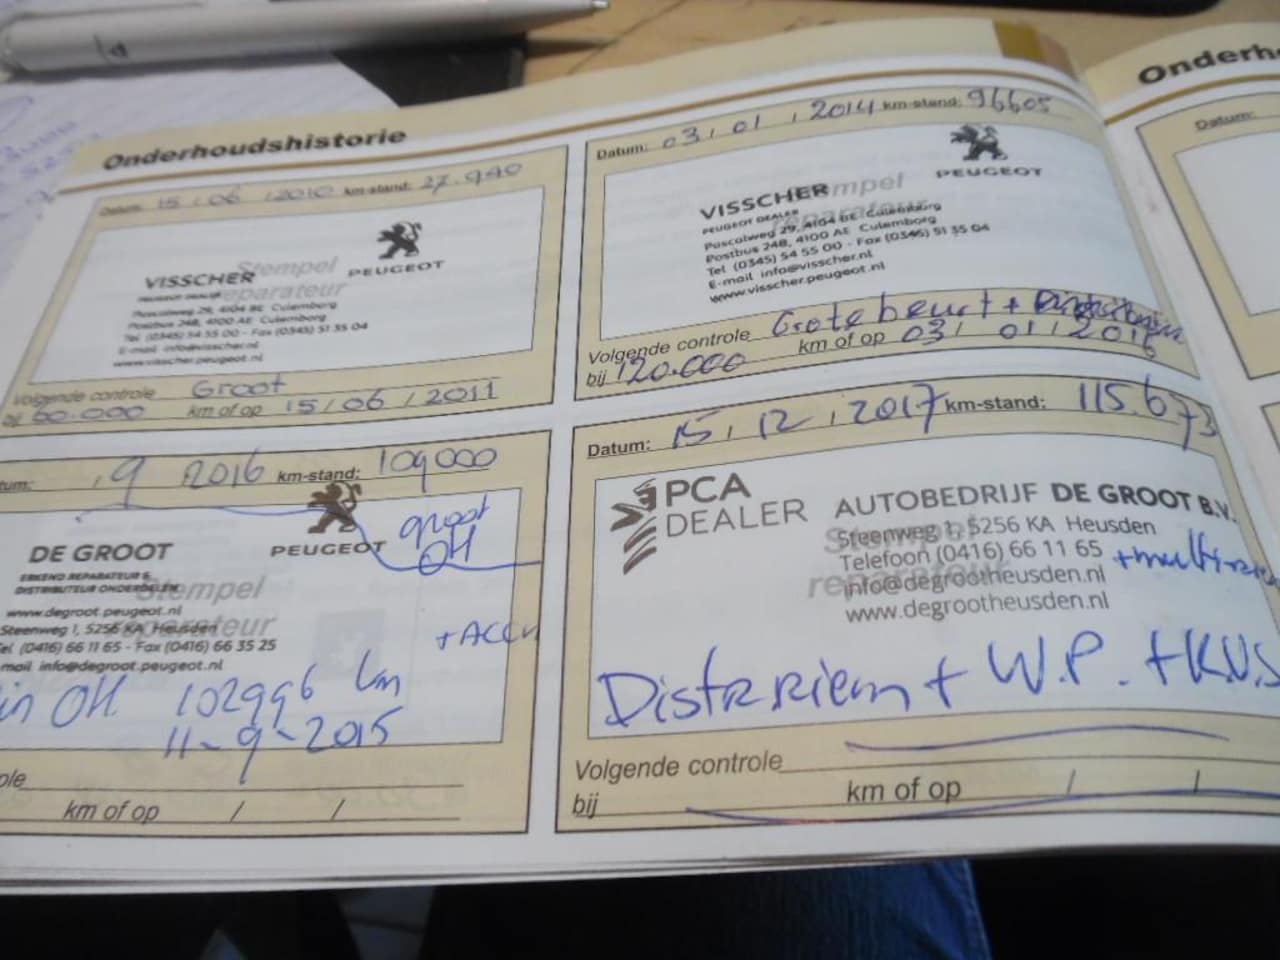 Onderhoudshistorie
Datum: 15 / 06 / 2010 km-stand: 27.940
Stempel reparateur
VISSCHER
PEUGEOT DEALER
PEUGEOT
Pascalweg 29, 4104 BE Culemborg
Postbus 248, 4100 AE Culemborg
Tel (0345) 54 55 00 - Fax (0345) 51 35 04
E-mail info@visscher.nl
www.visscher.peugeot.nl
Volgende controle Groot
bij 60.000 km of op 15 / 06 / 2011
Datum: 03 / 01 / 2014 km-stand: 96605
Stempel reparateur
VISSCHER
PEUGEOT DEALER
PEUGEOT
Pascalweg 29, 4104 BE Culemborg
Postbus 248, 4100 AE Culemborg
Tel (0345) 54 55 00 - Fax (0345) 51 35 04
E-mail info@visscher.nl
www.visscher.peugeot.nl
Volgende controle Grote beurt +
bij 120.000 km of op 03 / 01 / 2016
tum: , 9 2016 km-stand: 109000
PEUGEOT
groot
OH
DE GROOT
ERKEND REPARATEUR &
DISTRIBUTEUR ONDERDELEN
Stempel
reparateur
www.degroot.peugeot.nl
Steenweg 1, 5256 KA Heusden
Tel (0416) 66 11 65 - Fax (0416) 66 35 25
mail info@degroot.peugeot.nl
+ ACCU
in OH 102996 km
11-9-2015
ole
km of op / /
Datum: 15 / 12 / 2017 km-stand: 115.673
PCA
DEALER
AUTOBEDRIJF DE GROOT B.V.
Stempel
reparateur
Steenweg 1, 5256 KA Heusden
Telefoon (0416) 66 11 65
info@degrootheusden.nl
www.degrootheusden.nl
Distr riem + W.P. + K.V.S
Volgende controle
bij km of op / /
Onderh
Datum: